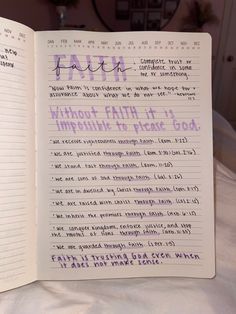 JAN FEB MAR APR MAY JUN JUL AUG SEP OCT NOV DEC
FAITH
faith
: complete trust or
confidence in some
one or something.
"Now faith is confidence in what we hope for +
assurance about what we do not see." -HEBREWS
Without FAITH it is
impossible to please God.
·We receive righteousness through faith. (Rom. 3:22)
·We are justified through faith. (Rom. 3:30; Gal. 2:16)
·We stand fast through faith. (Rom. 11:20)
·We are sons of God through faith. (Gal. 3:26)
·We are indwelled by Christ through faith. (Eph. 3:17)
·We are raised with Christ through faith. (Col. 2:12)
·We inherit the promises through faith. (Heb. 6:12)
·We conquer kingdoms, enforce justice, and stop
the mouths of lions through faith. (Heb. 11:33)
·We are guarded through faith. (1 Pet. 1:5)
Faith is trusting God even when
it does not make sense.